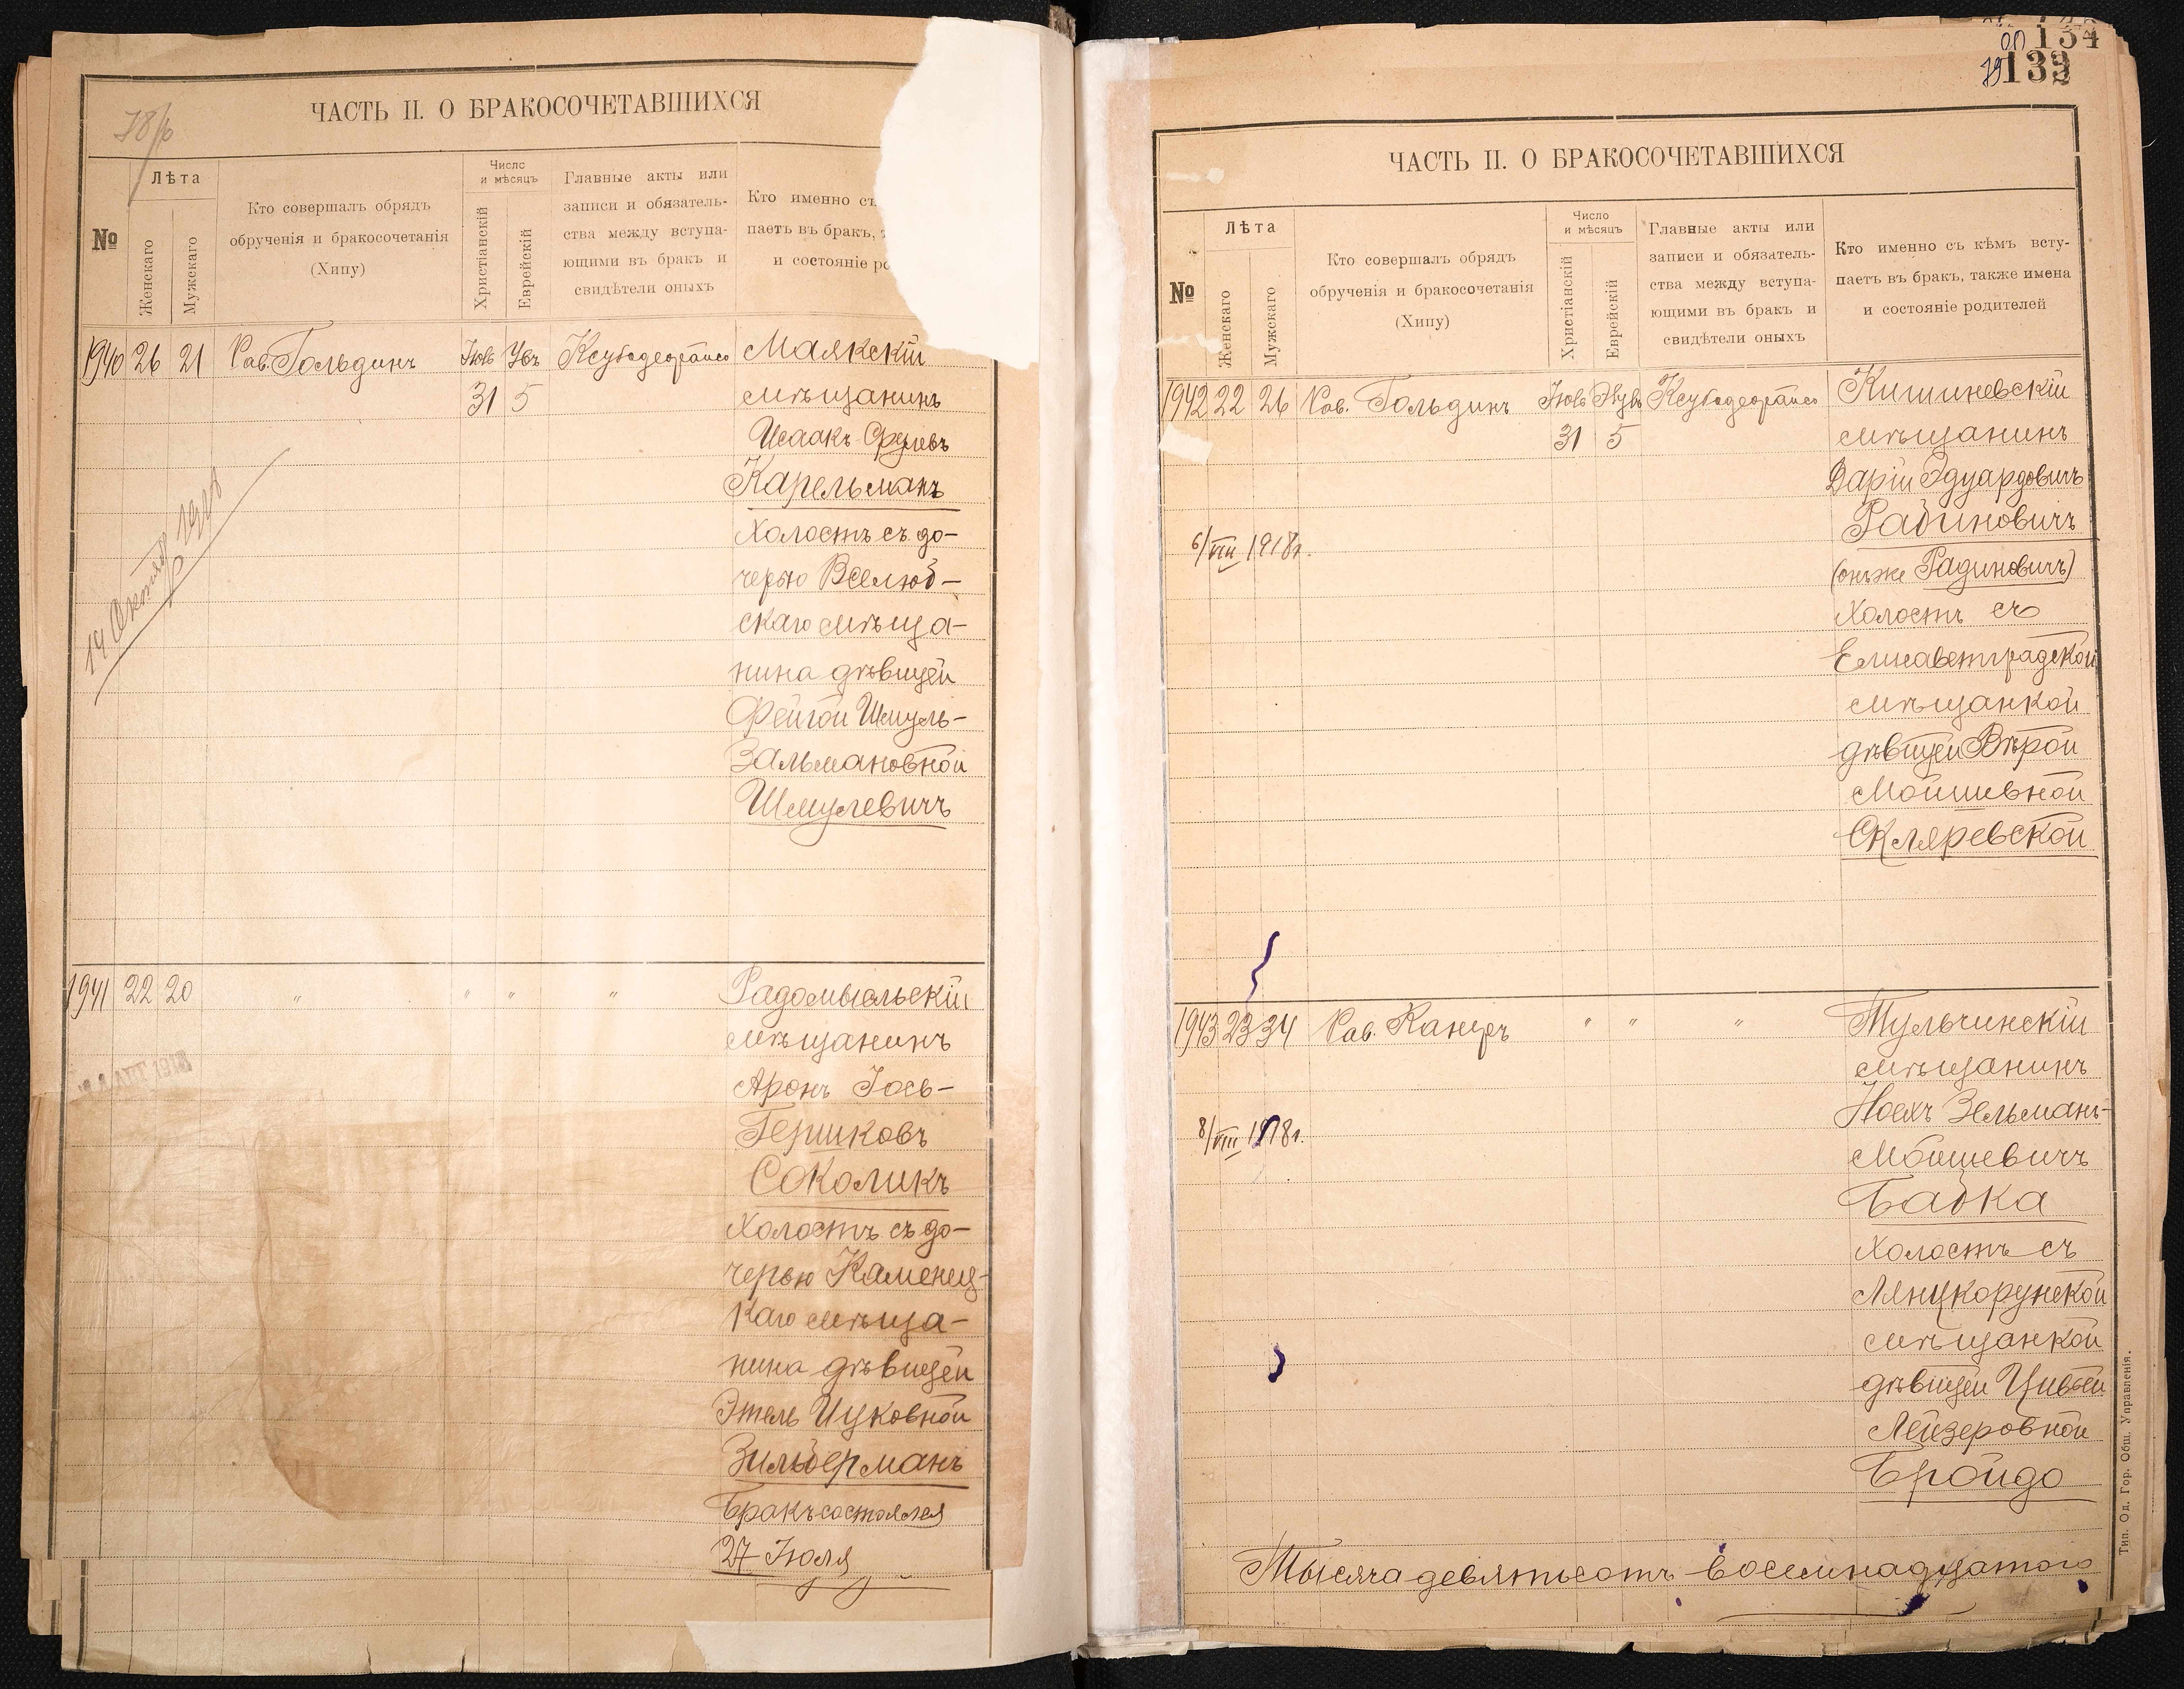 78/б
ЧАСТЬ II. О БРАКОСОЧЕТАВШИХСЯ
№
Лѣта
Женскаго
Мужскаго
Кто совершалъ обрядъ
обрученія и бракосочетанія
(Хипу)
Число
и мѣсяцъ
Христіанскій
Еврейскій
Главные акты или
записи и обязатель-
ства между вступа-
ющими въ бракъ и
свидѣтели оныхъ
Кто именно съ
паетъ въ бракъ,
и состояніе ро
1940 26 21 Рав. Гольдинъ
31 5
Маякскій
мѣщанинъ
Исаакъ Срулевъ
Карельманъ
холостъ съ до-
черью Вселюб-
скаго мѣща-
нина дѣвицей
Фейгой Шмуль-
Зальмановной
Шмулевичъ
1941 22 20 " " " "
Радомысльскій
мѣщанинъ
Аронъ Іось-
Гершковъ
Соколикъ
холостъ съ до-
черью Каменец-
каго мѣща-
нина дѣвицей
Этель Ицковной
Зильберманъ
Бракъ состоялся
27 Іюля
134
132
ЧАСТЬ II. О БРАКОСОЧЕТАВШИХСЯ
№
Лѣта
Женскаго
Мужскаго
Кто совершалъ обрядъ
обрученія и бракосочетанія
(Хипу)
Число
и мѣсяцъ
Христіанскій
Еврейскій
Главные акты или
записи и обязатель-
ства между вступа-
ющими въ бракъ и
свидѣтели оныхъ
Кто именно съ кѣмъ всту-
паетъ въ бракъ, также имена
и состояніе родителей
1942 22 26 Рав. Гольдинъ
31 5
Кишиневскій
мѣщанинъ
Дарій Эдуардовичъ
Рабиновичъ
(онъ же Радиновичъ)
холостъ съ
Елисаветградской
мѣщанкой
дѣвицей Вѣрой
Мошевной
Скляревской
6/VIII 1918г.
1943 23 34 Рав. Канеръ " " "
Тульчинскій
мѣщанинъ
Ноехъ Зельманъ-
Мошевичъ
Бабка
холостъ съ
Лянцкорунской
мѣщанкой
дѣвицей Цивьей
Лейзеровной
Бройдо
8/VIII 1918г.
Тысяча девятьсотъ восемнадцатого
Тип. Од. Гор. Общ. Управленія.